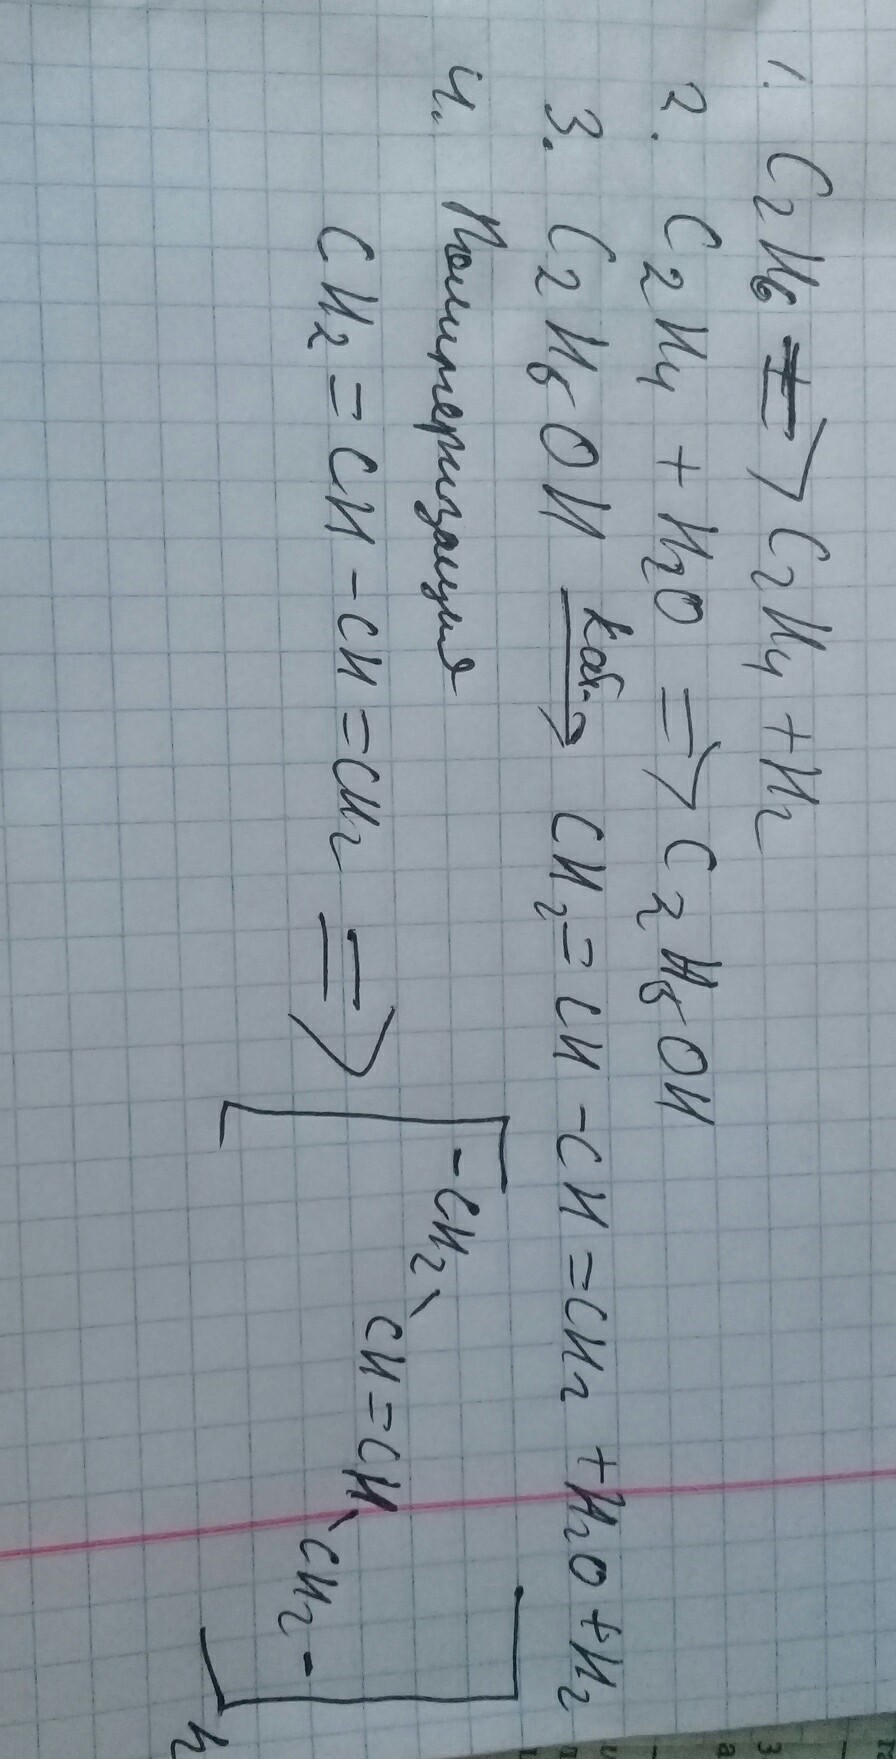 1. C2H6 => C2H4 + H2
2. C2H4 + H2O => C2H5OH
3. C2H5OH кат.→ CH2=CH-CH=CH2 + H2O + H2
4. Полимеризация
CH2=CH-CH=CH2 => [-CH2\CH=CH\CH2-]n